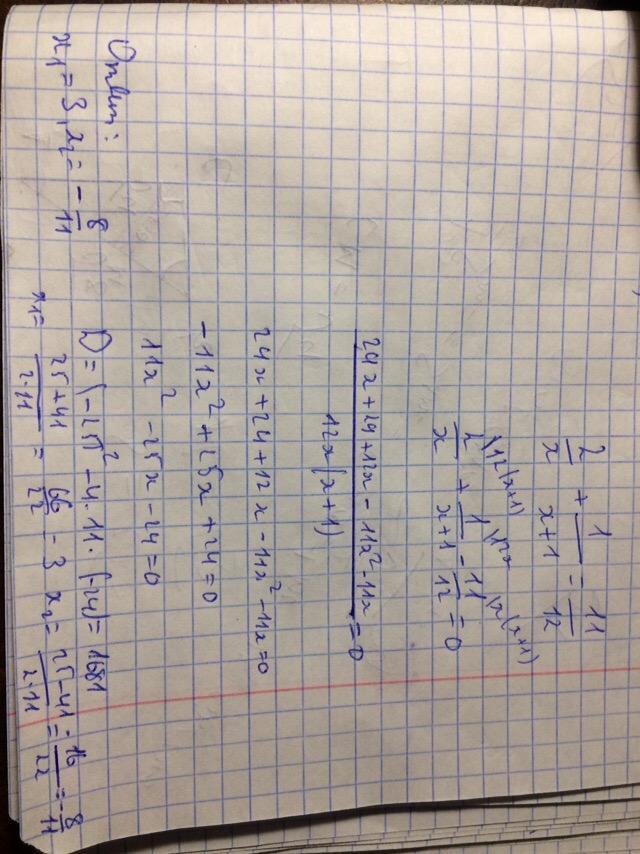 2/x + 1/(x+1) = 11/12
2/x \12(x+1) + 1/(x+1) \12x - 11/12 \x(x+1) = 0
(24x+24+12x-11x²-11x)/(12x(x+1)) = 0
24x+24+12x-11x²-11x=0
-11x²+25x+24=0
11x²-25x-24=0
D=(-25)²-4·11·(-24)=1681
x₁= (25+41)/(2·11) = 66/22 - 3 x₂= (25-41)/(2·11) = 16/22 = -8/11
Ответ:
x₁=3, x₂= -8/11